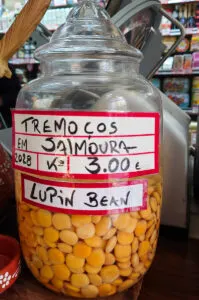 TREMOÇOS
EM SALMOURA
2028 Kº 3.00 €
LUPIN BEAN